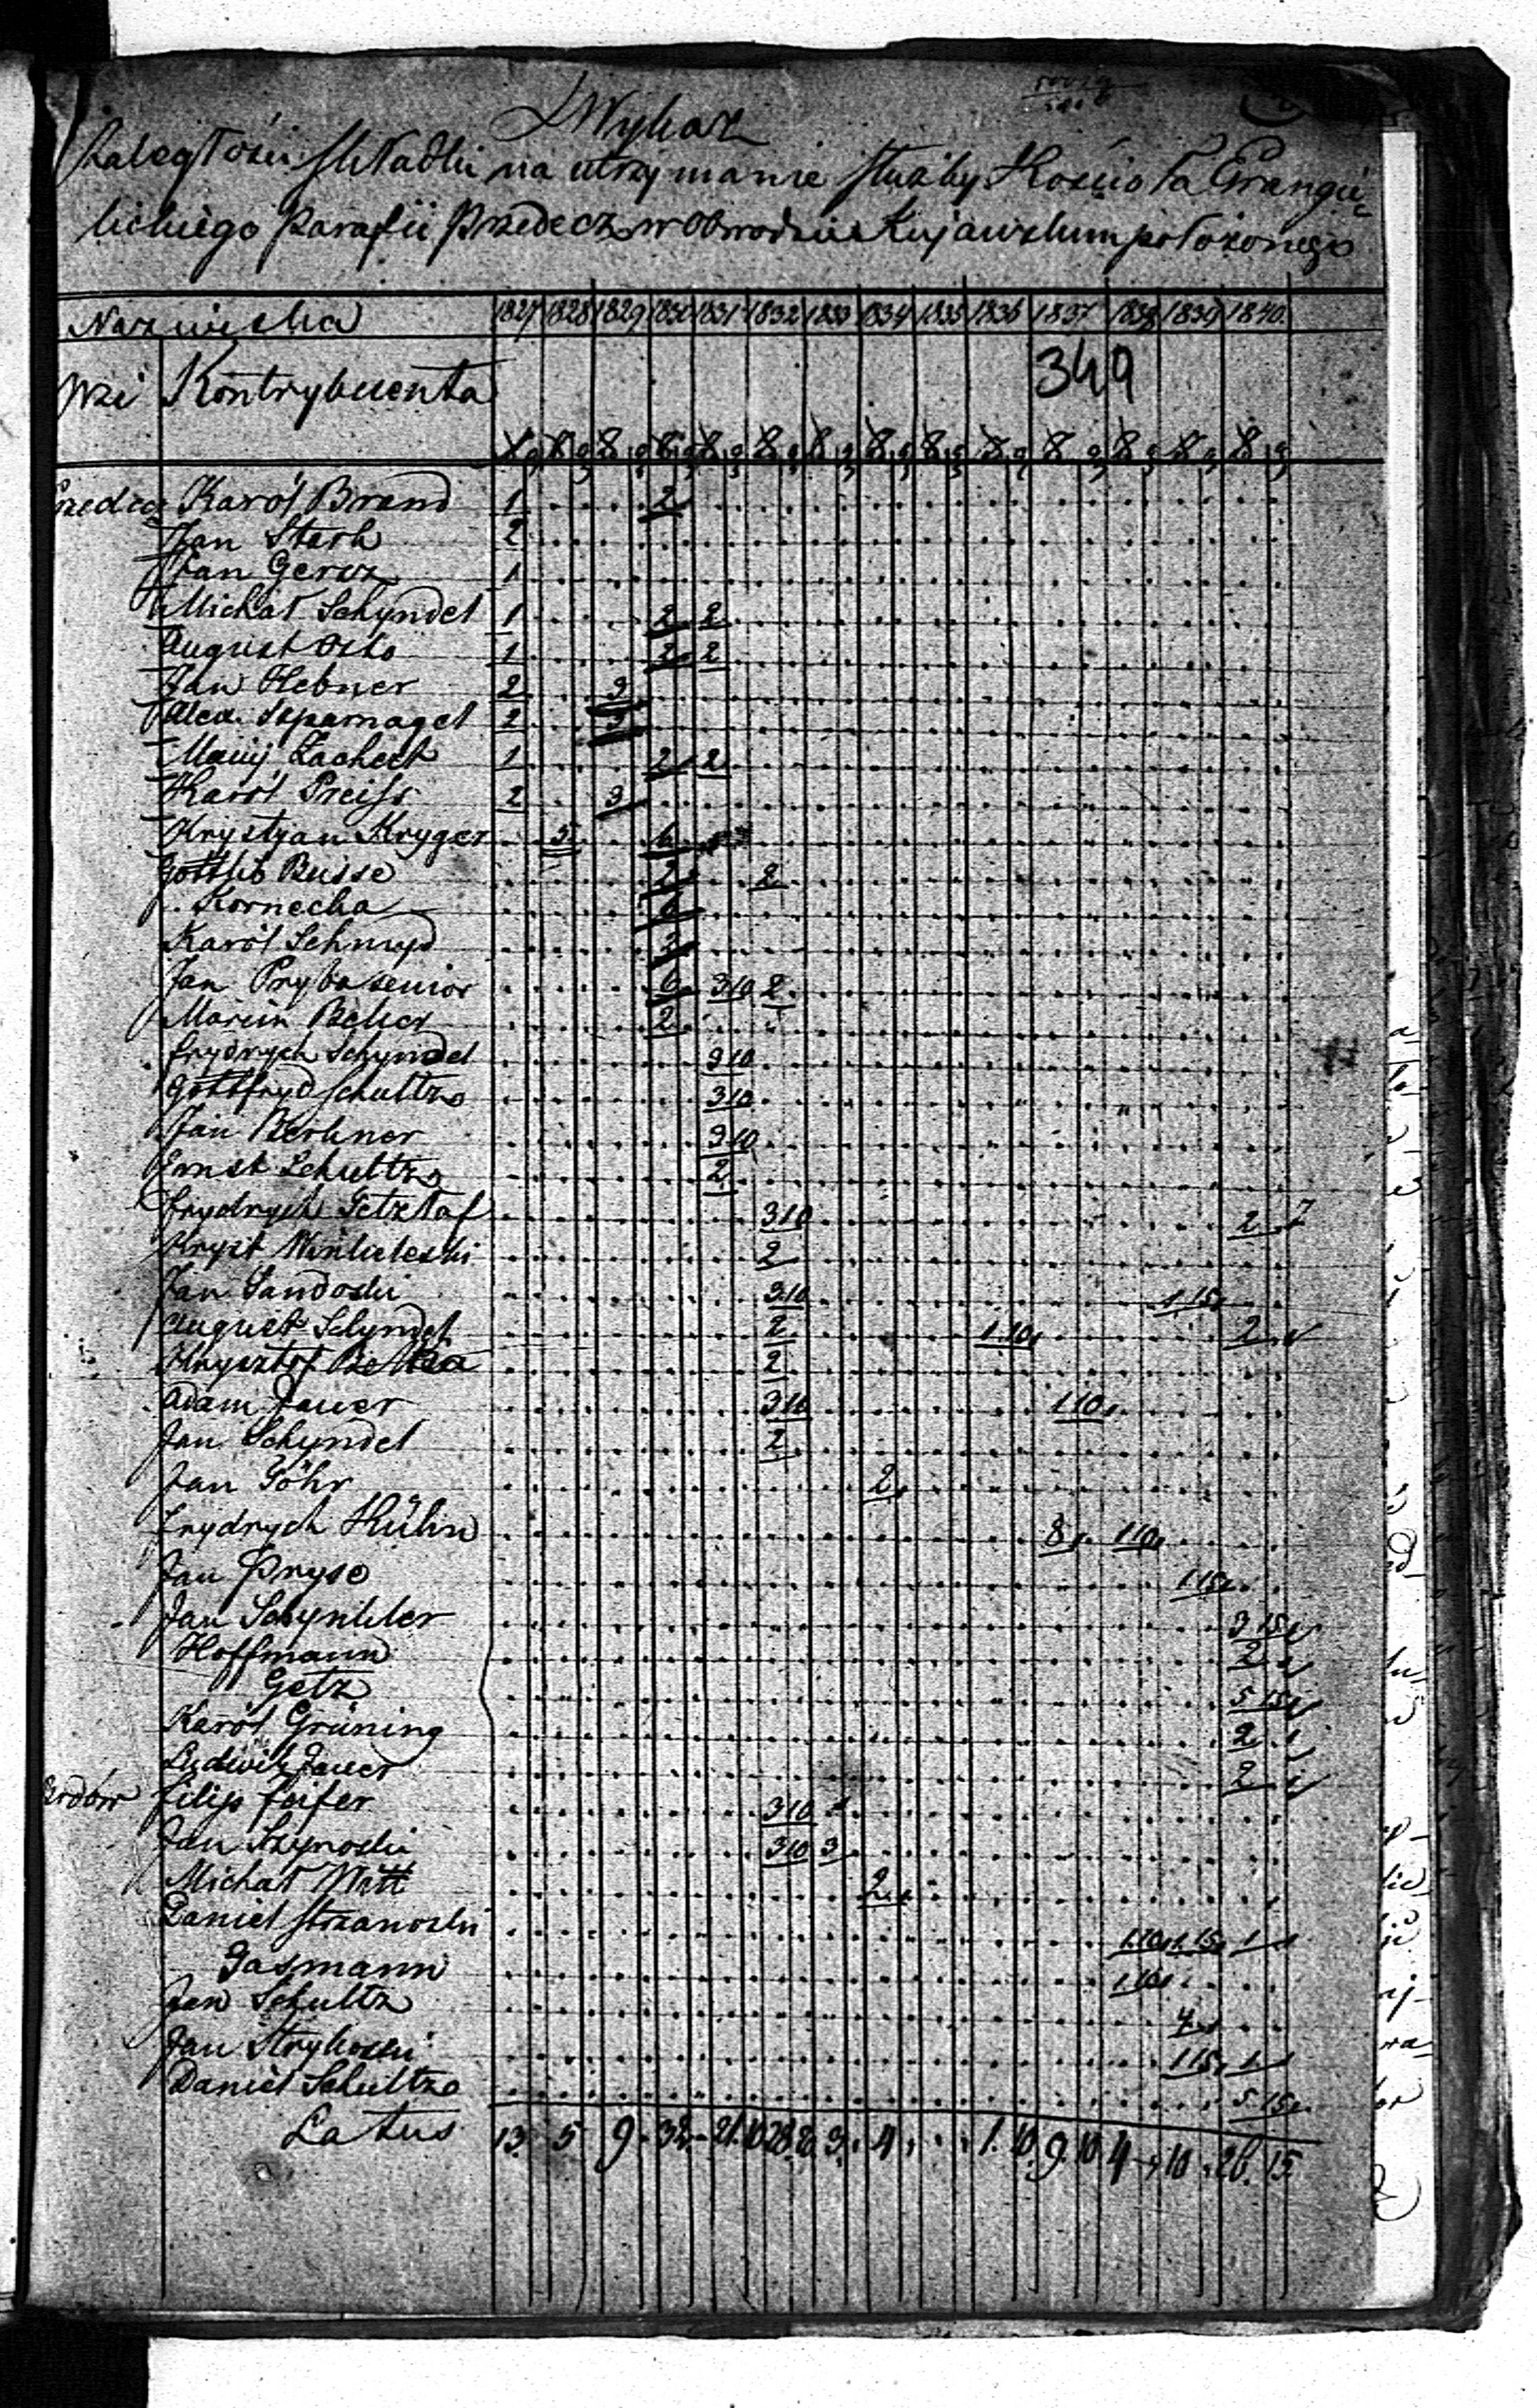 Wykaz
Zaległości składki na utrzymanie służby Kościoła Ewangie
lickiego Parafii Przedecz w Obwodzie Kujawskim położonego
Nazwiska 1827 1828 1829 1830 1831 1832 1833 1834 1835 1836 1837 1838 1839 1840
349
Wsi Kontrybuenta
Karól Brand 1 2
Jan Stark 2
Jan Gercz 1
Michał Schyndel 1 2 2
August Otto 1 2 2
Jan Hebner 2 3
Alex. Szparnagel 2 3
Maciej Zachert 1 2 2
Karól Preiss 2 3
Krystjan Kryger 5 6
Gottlib Busse 2 2
Kornecka 6
Karól Schmyd 2
Jan Pryba senior 6 3 10 2
Marcin Beker 2
Frydrych Schyndel 3 10
Gottfryd Schultz 3 10
Jan Berkner 3 10
Ernst Schultz 2
Frydrych 3 10 2
Kryst 2
Jan Sandoski 3 10 1 15
August Schyndel 2 1 10 2
Krysztof 2
Adam Jauer 3 10 1 10
Jan Schyndel 2
Jan Göhr 2
Frydrych Hühn 8 1 10
Jan Pryse 1 15
Jan 3 15
Hoffmann 2
Getz 5 15
Karól Grüning 2
Ludwik Jauer 2
Filip Feifer 3 10
Jan Szynoski 3 10 3
Michał Witt 2
Daniel 1 10 1 15 1
Gasmann 1 10
Jan Schultz 4
Jan Strykoski 1 15 1
Daniel Schultz 5 15
Latus 13 5 9 32 21 10 28 20 3 4 1 10 9 10 4 10 26 15